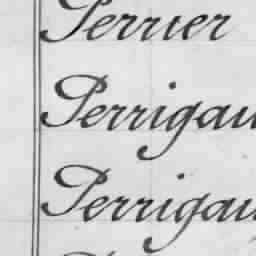 Perrier
Perrigau
Perrigau